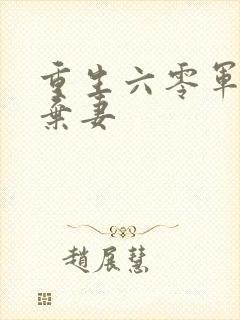 重生六零軍
棄妻
趙展慧